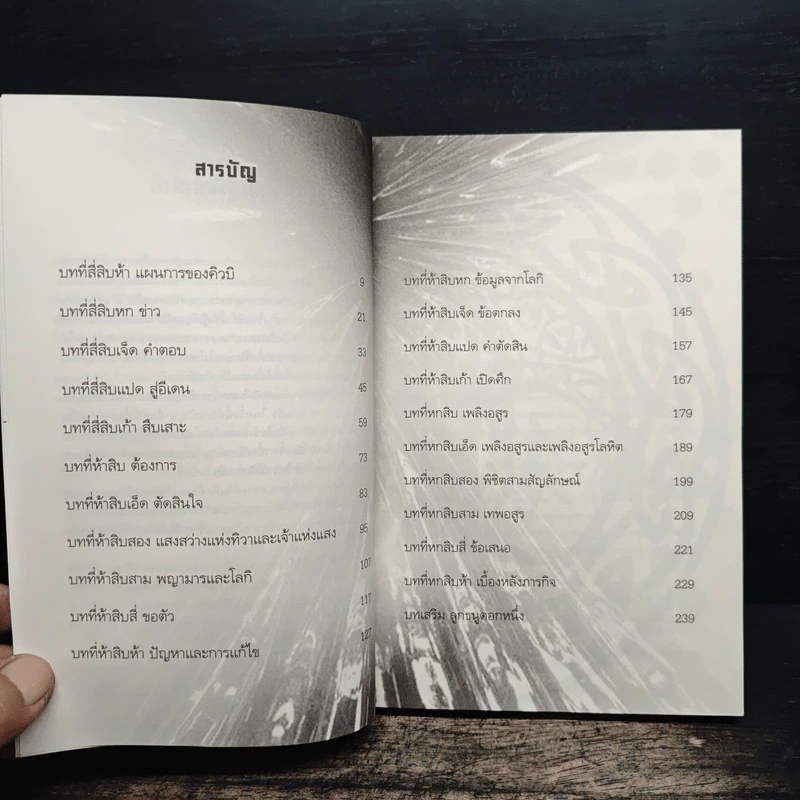 สารบัญ
บทที่สี่สิบห้า แผนการของคิวบิ 9
บทที่สี่สิบหก ข่าว 21
บทที่สี่สิบเจ็ด คำตอบ 33
บทที่สี่สิบแปด สู่อีเดน 45
บทที่สี่สิบเก้า สืบเสาะ 59
บทที่ห้าสิบ ต้องการ 73
บทที่ห้าสิบเอ็ด ตัดสินใจ 83
บทที่ห้าสิบสอง แสงสว่างแห่งทิวาและเจ้าแห่งแสง 95
บทที่ห้าสิบสาม พญามารและโลกิ 107
บทที่ห้าสิบสี่ ขอตัว 117
บทที่ห้าสิบห้า ปัญหาและการแก้ไข 127
บทที่ห้าสิบหก ข้อมูลจากโลกิ 135
บทที่ห้าสิบเจ็ด ข้อตกลง 145
บทที่ห้าสิบแปด คำตัดสิน 157
บทที่ห้าสิบเก้า เปิดศึก 167
บทที่หกสิบ เพลิงอสูร 179
บทที่หกสิบเอ็ด เพลิงอสูรและเพลิงอสูรโลหิต 189
บทที่หกสิบสอง พิชิตสามสัญลักษณ์ 199
บทที่หกสิบสาม เทพอสูร 209
บทที่หกสิบสี่ ข้อเสนอ 221
บทที่หกสิบห้า เบื้องหลังภารกิจ 229
บทเสริม ลูกธนูดอกหนึ่ง 239